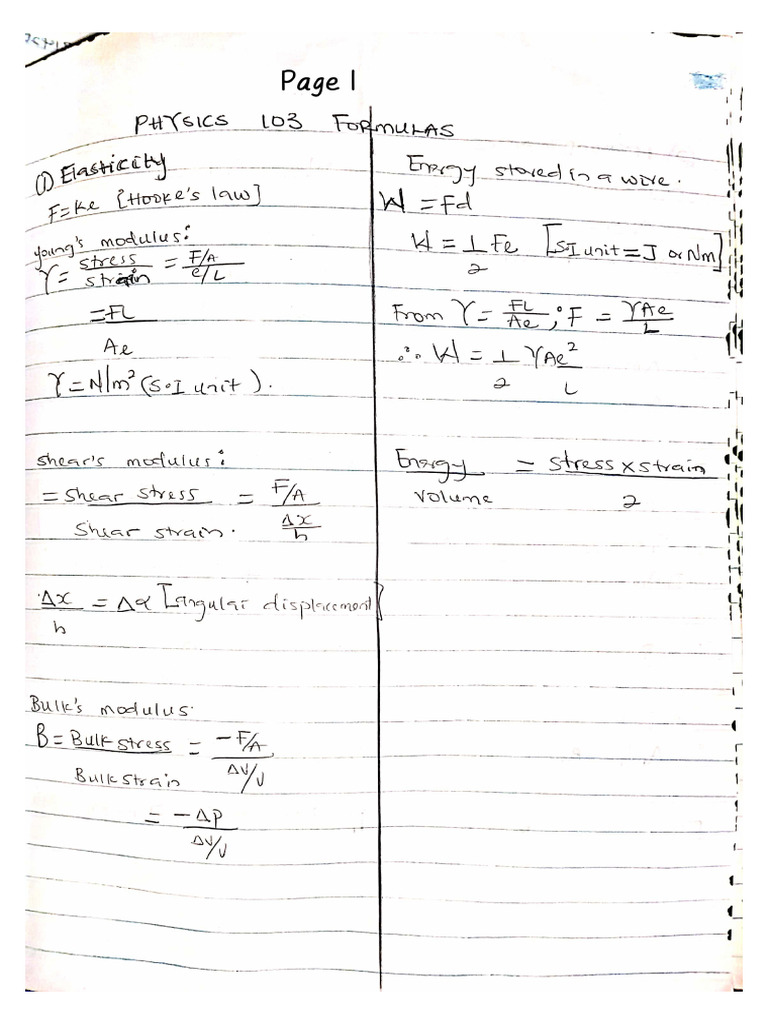 Page 1
PHYSICS 103 FORMULAS
① Elasticity
F=Ke [Hooke's law]
young's modulus:
Y = stress/strain = F/A / e/L
= FL/Ae
Y = N/m² (S.I unit).
Shear's modulus:
= Shear stress/Shear strain. = F/A / Δx/h
Δx/h = Δα [angular displacement]
Bulk's modulus.
B = Bulk stress/Bulk strain = -F/A / ΔV/V
= -ΔP / ΔV/V
Energy stored in a wire.
W = Fd
W = 1/2 Fe [S.I unit = J or Nm]
From Y = FL/Ae; F = YAe/L
∴ W = 1/2 YAe²/L
Energy/Volume = stress x strain/2